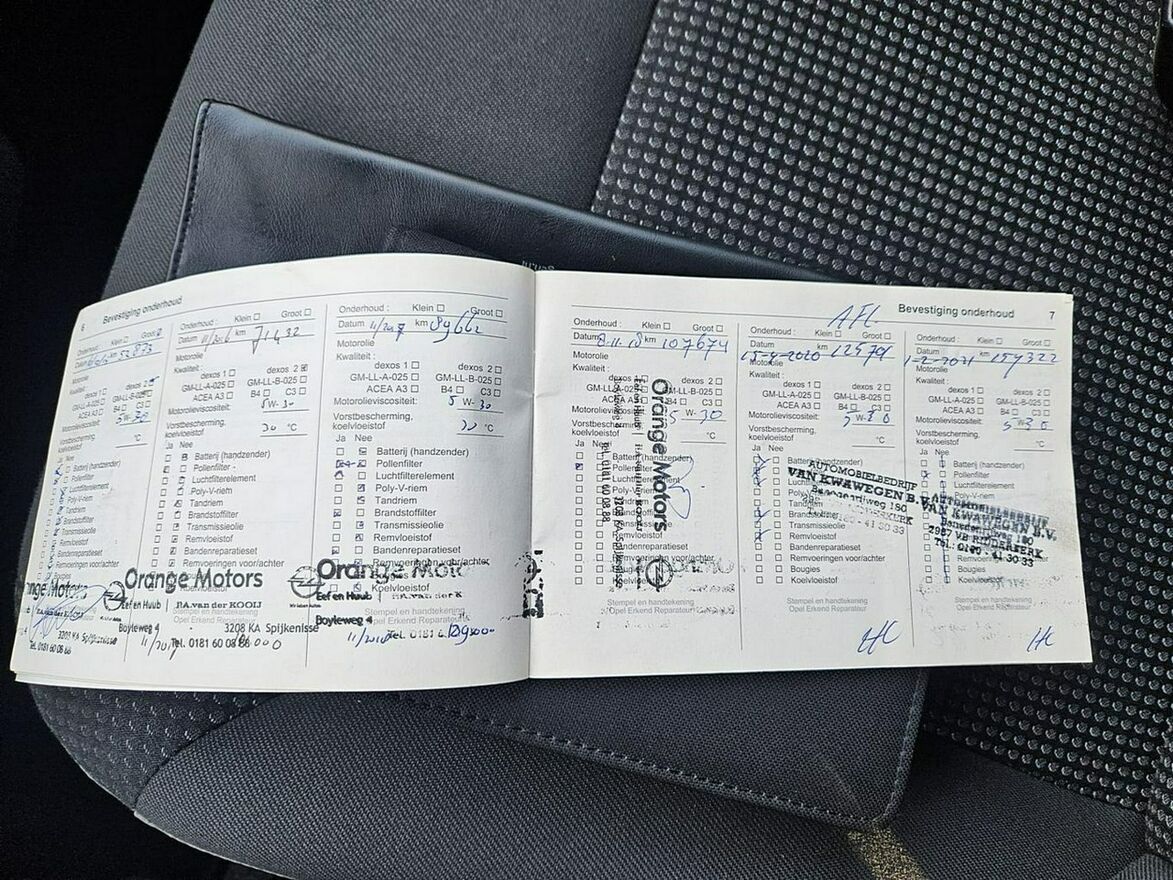 6 Bevestiging onderhoud
Groot
Datum 52873
Motorolie
Kwaliteit:
dexos 2
GM-LL-B-025
ACEA A3 B4 C3
Motorolieviscositeit:
5 W-30
Vorstbescherming,
koelvloeistof
Ja Nee
Batterij (handzender)
Pollenfilter
Luchtfilterelement
Poly-V-riem
Tandriem
Brandstoffilter
Transmissieolie
Remvloeistof
Bandenreparatieset
Remvoeringen voor/achter
Orange Motors
P.A. van der KOOIJ
3208 KA Spijkenisse
Tel. 0181 60 08 88
Onderhoud : Klein Groot
Datum 11/2016 km 71432
Motorolie
Kwaliteit:
dexos 1 dexos 2
GM-LL-A-025 GM-LL-B-025
ACEA A3 B4 C3
Motorolieviscositeit: 5 W- 30
Vorstbescherming,
koelvloeistof 30 °C
Ja Nee
Batterij (handzender)
Pollenfilter
Luchtfilterelement
Poly-V-riem
Tandriem
Brandstoffilter
Transmissieolie
Remvloeistof
Bandenreparatieset
Remvoeringen voor/achter
Orange Motors
Eef en Huub P.A. van der KOOIJ
Stempel en handtekening
Opel Erkend Reparateur
Boyleweg 4 3208 KA Spijkenisse
Tel. 0181 60 08 88
Onderhoud : Klein Groot
Datum 11/2017 km 89662
Motorolie
Kwaliteit:
dexos 1 dexos 2
GM-LL-A-025 GM-LL-B-025
ACEA A3 B4 C3
Motorolieviscositeit: 5 W- 30
Vorstbescherming,
koelvloeistof °C
Ja Nee
Batterij (handzender)
Pollenfilter
Luchtfilterelement
Poly-V-riem
Tandriem
Brandstoffilter
Transmissieolie
Remvloeistof
Bandenreparatieset
Remvoeringen voor/achter
Koelvloeistof
Orange Moto
Eef en Huub P.A. van der K
Stempel en handtekening
Opel Erkend Reparateur
Boyleweg 4
Tel. 0181 6
Bevestiging onderhoud 7
Onderhoud : Klein Groot
Datum 8-11-18 km 107674
Motorolie
Kwaliteit:
dexos 1 dexos 2
GM-LL-A-025 GM-LL-B-025
ACEA A3 B4 C3
Motorolieviscositeit: 5 W- 30
Vorstbescherming,
koelvloeistof °C
Ja Nee
Batterij (handzender)
Pollenfilter
Orange Motors
Tel. 0181 60 08 88
Stempel en handtekening
Opel Erkend Reparateur
AFL
Onderhoud : Klein Groot
15-4-2020
Motorolie
Kwaliteit:
dexos 1 dexos 2
GM-LL-A-025 GM-LL-B-025
ACEA A3 B4 C3
Motorolieviscositeit: 5 W-30
Vorstbescherming,
koelvloeistof °C
Ja Nee
Batterij (handzender)
Pollenfilter
Luchtfilterelement
Poly-V-riem
Tandriem
Brandstoffilter
Transmissieolie
Remvloeistof
Bandenreparatieset
Remvoeringen voor/achter
Bougies
Koelvloeistof
AUTOMOBIELBEDRIJF
VAN KWAWEGEN B.V.
Stempel en handtekening
Opel Erkend Reparateur
Onderhoud : Klein Groot
Datum km 154322
Motorolie
Kwaliteit:
dexos 1 dexos 2
GM-LL-A-025 GM-LL-B-025
ACEA A3 B4 C3
Motorolieviscositeit: 5 W-30
Vorstbescherming,
koelvloeistof °C
Ja Nee
Batterij (handzender)
Pollenfilter
Luchtfilterelement
Poly-V-riem
Tandriem
Brandstoffilter
Transmissieolie
Remvloeistof
Bandenreparatieset
Remvoeringen voor/achter
Bougies
Koelvloeistof
AUTOMOBIELBEDRIJF
VAN KWAWEGEN B.V.
Tel. 0180 - 41 30 33
Stempel en handtekening
Opel Erkend Reparateur